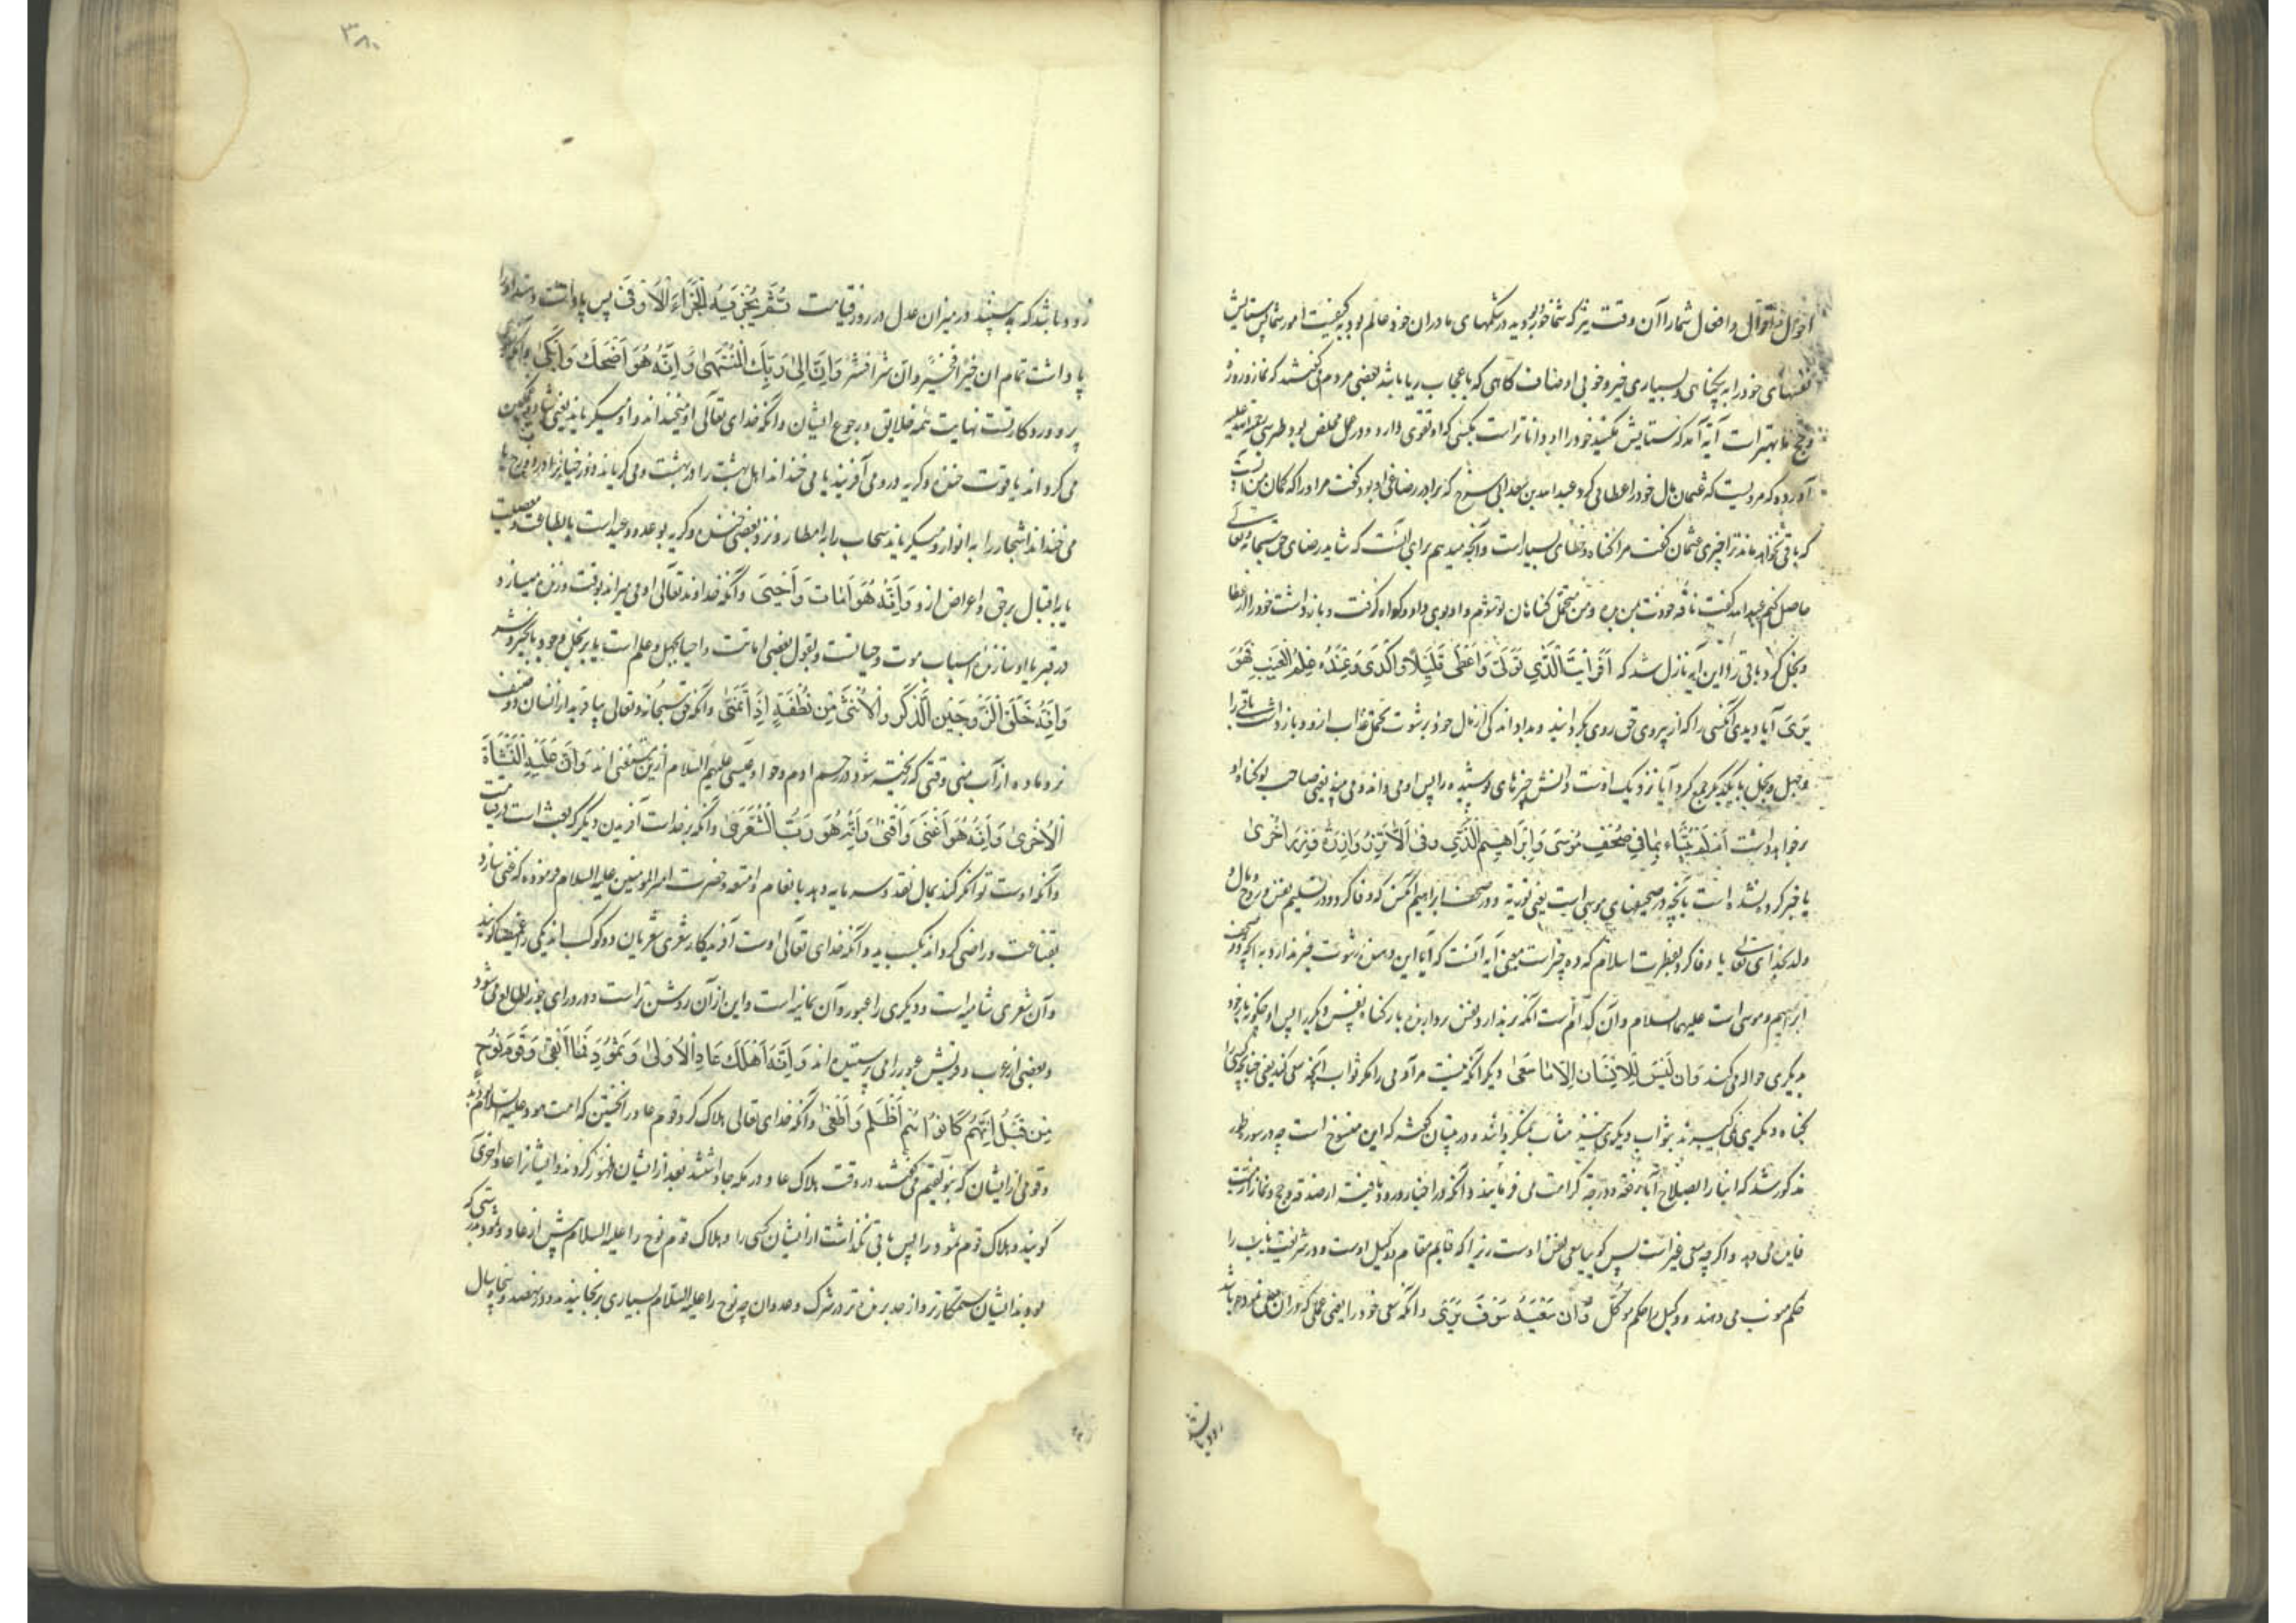 احوال و اقوال و افعال شما را آن وقت نیز که شما خود بودید در شکمهای مادران خود عالم بود به کیفیت امور شما پس ستایش
نفسهای خود را به بسیاری خیر و خوبی اوصاف کاهی که با عجاب ریا باشد بعضی مردم می گفتند که نماز و روزه
و حج ما بهتر است آیه آمد که ستایش مکنید خود را او داناتر است بکسی که او تقوی دارد و در عمل مخلص بود طبرسی علیه
آورده که مرویست که عثمان مال خود را عطا می کرد عبد الله بن سعد ابی سرح که برادر رضاعی او بود گفت مر او را که گمان من آنست
که باقی نخواهد ماند ترا چیزی عثمان گفت مرا گناه و خطای بسیار است و آنچه میدهم برای آنست که شاید رضای حق سبحانه و تعالی
حاصل کنم عبد الله گفت ناقه خودت بمن ده و من متحمل گناهان تو شوم و او بوی داد و گواه گرفت و باز داشت خود را از عطا
و بخل کرد باقی را این آیه نازل شد که اَفَرَاَیْتَ الَّذِی تَوَلّٰی وَاَعْطٰی قَلِیلًا وَاَکْدٰی اَعِنْدَهُ عِلْمُ الْغَیْبِ فَهُوَ
یَرٰی آیا دیدی آنکسی را که از پیروی حق روی بگردانید و بداد اندکی از مال خود برشوت تحمل عذاب ازو و باز داشت باقی را
و جهل و بخل با یکدیگر جمع کرد آیا نزدیک اوست دانش چیزهای پوشیده را پس او می داند و می بیند یعنی صاحب او گناه او
بر خواهد داشت اَمْ لَمْ یُنَبَّأْ بِمَا فِی صُحُفِ مُوسٰی وَاِبْرَاهِیمَ الَّذِی وَفّٰی اَلَّا تَزِرُ وَازِرَةٌ وِزْرَ اُخْرٰی
یا خبر کرده نشده است بآنچه در صحیفهای موسی است یعنی توریة و در صحف ابراهیم آنکس که وفا کرد و در تسلیم نفس و روح و مال و
ولد بخدای تعالی یا وفا کرد بفطرت اسلام که ده چیز است معنی آیه آنست که آیا این دهنده رشوت خبر ندارد به آنچه در صحف
ابراهیم و موسی است علیهما السلام و آن کدامست آنکه بر ندارد نفس بردارنده بار گناه نفس دیگر را پس او چگونه بار خود
بدیگری حواله می کند وَاَنْ لَیْسَ لِلْاِنْسَانِ اِلَّا مَا سَعٰی دیگر آنکه نیست مر آدمی را مگر ثواب آنچه سعی کند یعنی چنانچه کسی را
بگناه دیگری نمی گیرند بثواب دیگری نیز مثاب نمیگردانند و در تبیان گفته که این منسوخ است چه در سوره طور
مذکور شد که ابنا را بصلاح آبا رفعت و درجه کرامت می فرمایند و آنکه در اخبار ورود یافته از صدقه و حج و نماز میت
فایده می دهد و اگرچه سعی غیر است پس گوییا سعی نفس اوست زیرا که قایم مقام و وکیل اوست و در شریعت نایب را
حکم منوب می دهند و وکیل را حکم موکل وَاَنَّ سَعْیَهُ سَوْفَ یُرٰی و آنکه سعی خود را یعنی عملی که در آن سعی نموده باشد
زود باشد
۳۸۰
زود باشد که ببینند در میزان عدل در روز قیامت ثُمَّ یُجْزٰیهُ الْجَزَاءَ الْاَوْفٰی پس پاداشت دهند او را
پاداشت تمام ان خیرا فخیر و ان شرا فشر وَاَنَّ اِلٰی رَبِّکَ الْمُنْتَهٰی وَاَنَّهُ هُوَ اَضْحَکَ وَاَبْکٰی
پروردگار تست نهایت همه خلایق و رجوع ایشان و آنکه خدای تعالی او میخنداند و او میگریاند یعنی شاد و غمگین
می گرداند یا قوت خنده و گریه در و می آفریند یا می خنداند اهل بهشت را در بهشت و می گریاند دوزخیانرا در دوزخ یا
می خنداند اشجار را به انوار و میگریاند سحاب را به امطار و نزد بعضی خنده و گریه بوعد و وعید است یا بطاعت و معصیت
یا باقبال برحق و اعراض ازو وَاَنَّهُ هُوَ اَمَاتَ وَاَحْیٰی و آنکه خداوند تعالی او می میراند بوقت و زنده میسازد
در قبر یا او سازنده اسباب موت و حیاتست و بقول بعضی اماتت و احیا بجهل و علم است یا به بخل و جود یا بخیر و شر
وَاَنَّهُ خَلَقَ الزَّوْجَیْنِ الذَّکَرَ وَالْاُنْثٰی مِنْ نُطْفَةٍ اِذَا تُمْنٰی و آنکه حق سبحانه و تعالی بیافرید از انسان دو صنف
نر و ماده از آب منی وقتی که ریخته شود در رحم ادم و حوا و عیسی علیهم السلام ازین مستثنی اند وَاَنَّ عَلَیْهِ النَّشْاَةَ
الْاُخْرٰی وَاَنَّهُ هُوَ اَغْنٰی وَاَقْنٰی وَاَنَّهُ هُوَ رَبُّ الشِّعْرٰی و آنکه بر خداست آفریدن دیگر که بعث است در قیامت
و آنکه اوست توانگر کند بمال نقد و سرمایه دهد بانعام و امتعه و حضرت امیر المومنین علیه السلام فرموده که غنی سازد
بقناعت و راضی گرداند بکسب ید و آنکه خدای تعالی اوست آفریدگار شعری شعریان دو کوکب اند یکی را غمیصا گویند
و آن شعری شامیه است و دیگری را عبور و آن یمانیه است و این از آن روشن تر است و در ورای جوزا طالع می شود
و بعضی از عرب و قریش عبور را می پرستیده اند وَاَنَّهُ اَهْلَکَ عَادًا الْاُولٰی وَثَمُودَ فَمَا اَبْقٰی وَقَوْمَ نُوحٍ
مِنْ قَبْلُ اِنَّهُمْ کَانُوا هُمْ اَظْلَمَ وَاَطْغٰی و آنکه خدای تعالی هلاک کرد قوم عاد را نخستین که امت هود علیه السلام بودند
و قومی از ایشان که بنو لقیم می گفتند در وقت هلاک عاد در مکه جا داشتند بعد از ایشان ظهور کردند و ایشانرا عاد اخری
گویند و هلاک قوم ثمود را پس باقی نگذاشت از ایشان کسی را و هلاک قوم نوح را علیه السلام پیش از عاد و ثمود
بودند ایشان ستمکارتر و از حد برنده تر در شرک و عدوان چه نوح را علیه السلام بسیاری برنجانیدند و در نهصد و پنجاه سال